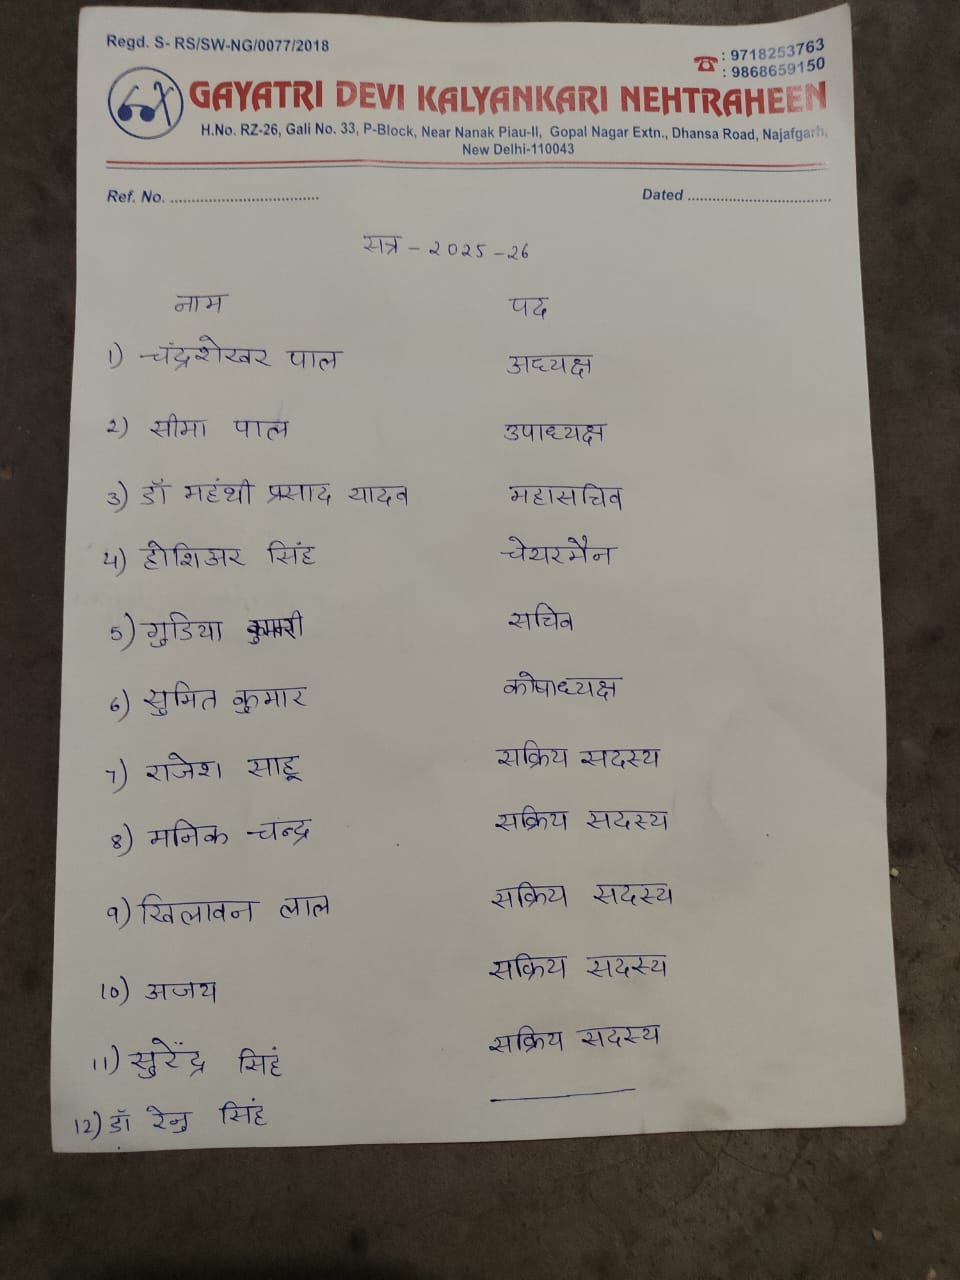 Regd. S- RS/SW-NG/0077/2018
: 9718253763
: 9868659150
GAYATRI DEVI KALYANKARI NEHTRAHEEN
H.No. RZ-26, Gali No. 33, P-Block, Near Nanak Piau-II, Gopal Nagar Extn., Dhansa Road, Najafgarh,
New Delhi-110043
Ref. No. .................................. Dated ..................................
सत्र - 2025-26
नाम पद
1) चंद्रशेखर पाल अध्यक्ष
2) सीमा पाल उपाध्यक्ष
3) डॉ महंथी प्रसाद यादव महासचिव
4) होशिअर सिंह चेयरमैन
5) गुडिया कुमारी सचिव
6) सुमित कुमार कोषाध्यक्ष
7) राजेश साहू सक्रिय सदस्य
8) मनिक चन्द्र सक्रिय सदस्य
9) खिलावन लाल सक्रिय सदस्य
10) अजय सक्रिय सदस्य
11) सुरेंद्र सिंह सक्रिय सदस्य
12) डॉ रेनु सिंह